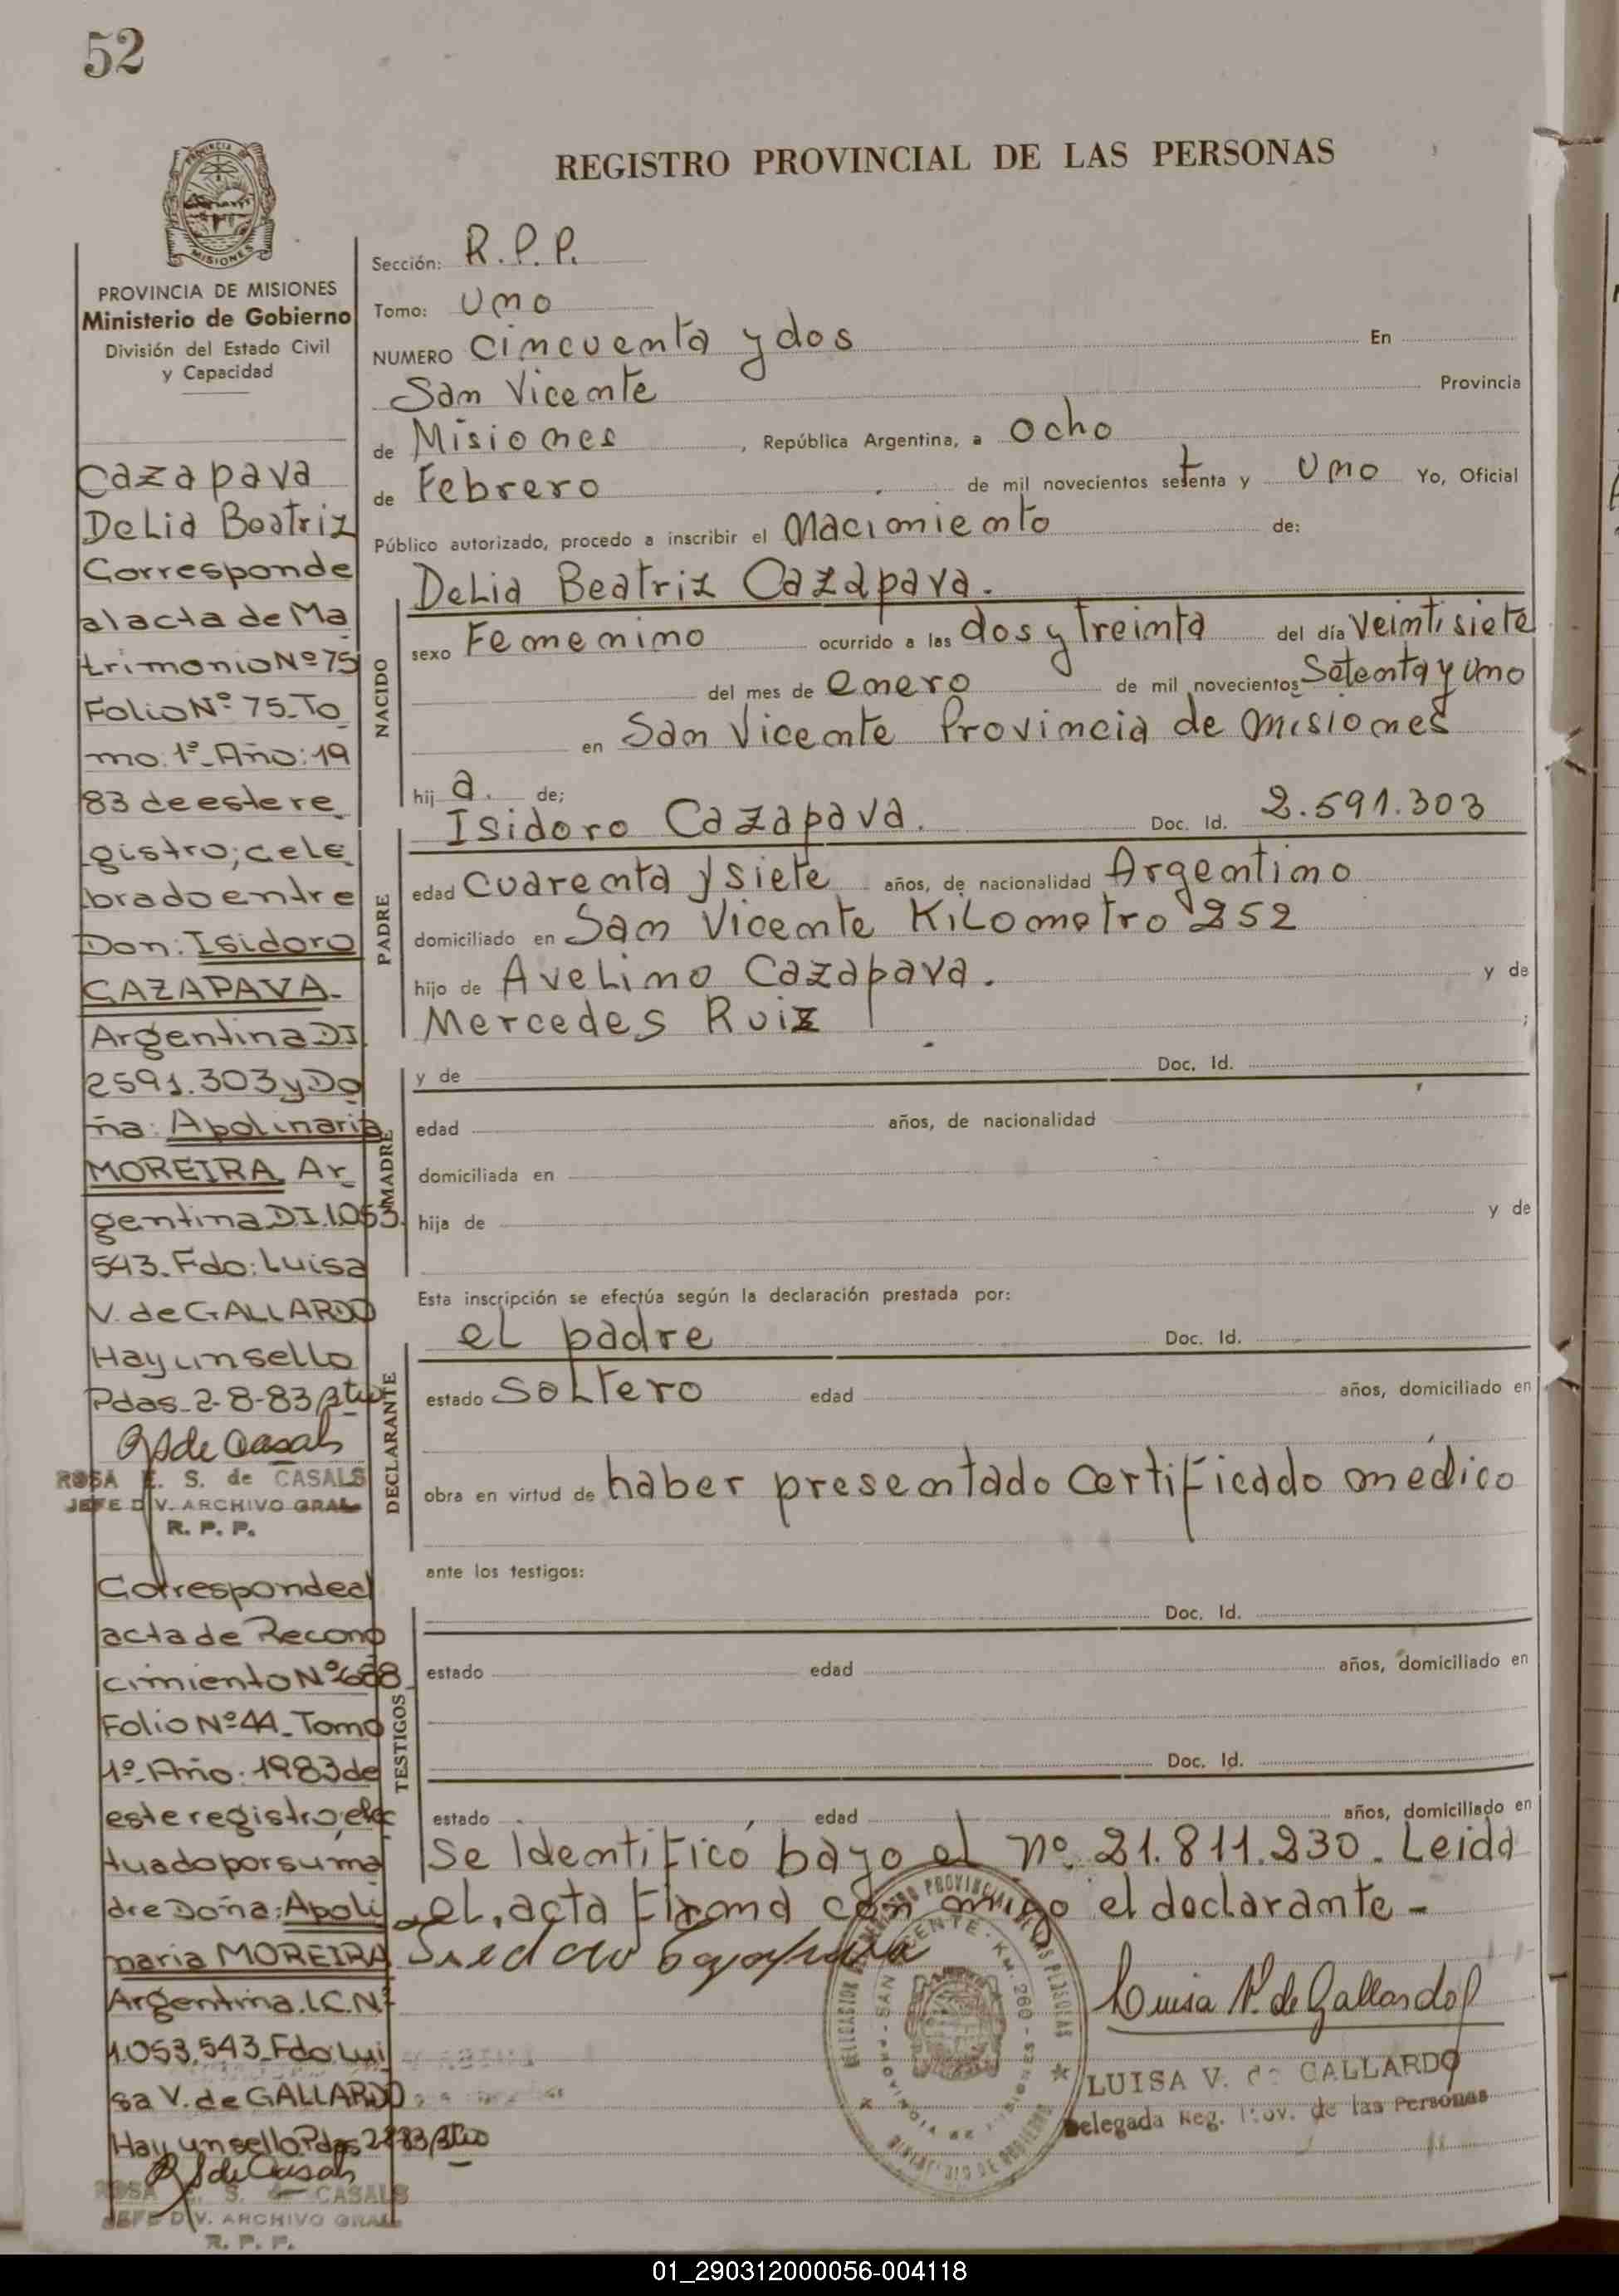 52
REGISTRO PROVINCIAL DE LAS PERSONAS
PROVINCIA DE MISIONES
Ministerio de Gobierno
División del Estado Civil
y Capacidad
Cazapava
Delia Beatriz
Corresponde
al acta de Ma
trimonio Nº 75
Folio Nº 75_To
mo: 1º_Año: 19
83 de este re
gistro; cele
brado entre
Don: Isidoro
CAZAPAVA_
Argentina DI
2591.303 y Do
ña: Apolinaria
MOREIRA Ar
gentina D.I. 1.053.
543_Fdo: Luisa
V. de GALLARDO
Hay un sello
Pdas_2-8-83
RSde Casals
ROSA E. S. de CASALS
JEFE DIV. ARCHIVO GRAL
R. P. P.
Corresponde al
acta de Recono
cimiento Nº 688
Folio Nº 44_Tomo
1º_Año: 1983 de
este registro; efec
tuado por su ma
dre Doña: Apoli
naria MOREIRA
Argentina. I.C.Nº
1.053.543_Fdo: Lui
sa V. de GALLARDO
Hay un sello Pdas 2-8-83
RSde Casals
ROSA E. S. de CASALS
JEFE DIV. ARCHIVO GRAL
R. P. P.
Sección: R.P.P.
Tomo: Uno
NUMERO Cincuenta y dos En
San Vicente Provincia
de Misiones, República Argentina, a Ocho
de Febrero de mil novecientos setenta y Uno Yo, Oficial
Público autorizado, procedo a inscribir el Nacimiento de:
NACIDO
Delia Beatriz Cazapava.
sexo Femenino ocurrido a las dos y Treinta del día Veintisiete
del mes de enero de mil novecientos Setenta y Uno
en San Vicente Provincia de Misiones
hij a. de;
PADRE
Isidoro Cazapava. Doc. Id. 2.591.303
edad Cuarenta y siete años, de nacionalidad Argentino
domiciliado en San Vicente Kilometro 252
hijo de Avelino Cazapava. y de
Mercedes Ruiz ;
MADRE
y de Doc. Id.
edad años, de nacionalidad
domiciliada en
hija de y de
Esta inscripción se efectúa según la declaración prestada por:
DECLARANTE
el padre Doc. Id.
estado Soltero edad años, domiciliado en
obra en virtud de haber presentado Certificado médico
ante los testigos:
TESTIGOS
Doc. Id.
estado edad años, domiciliado en
Doc. Id.
estado edad años, domiciliado en
Se Identificó bajo el nº 21.811.230. Leida
el, acta Firma con migo el declarante -
Luisa V. de Gallardo
SAN VICENTE - KM. 260 - PROVINCIA DE MISIONES
LUISA V. de GALLARDO
Delegada Reg. Prov. de las Personas
01_290312000056-004118